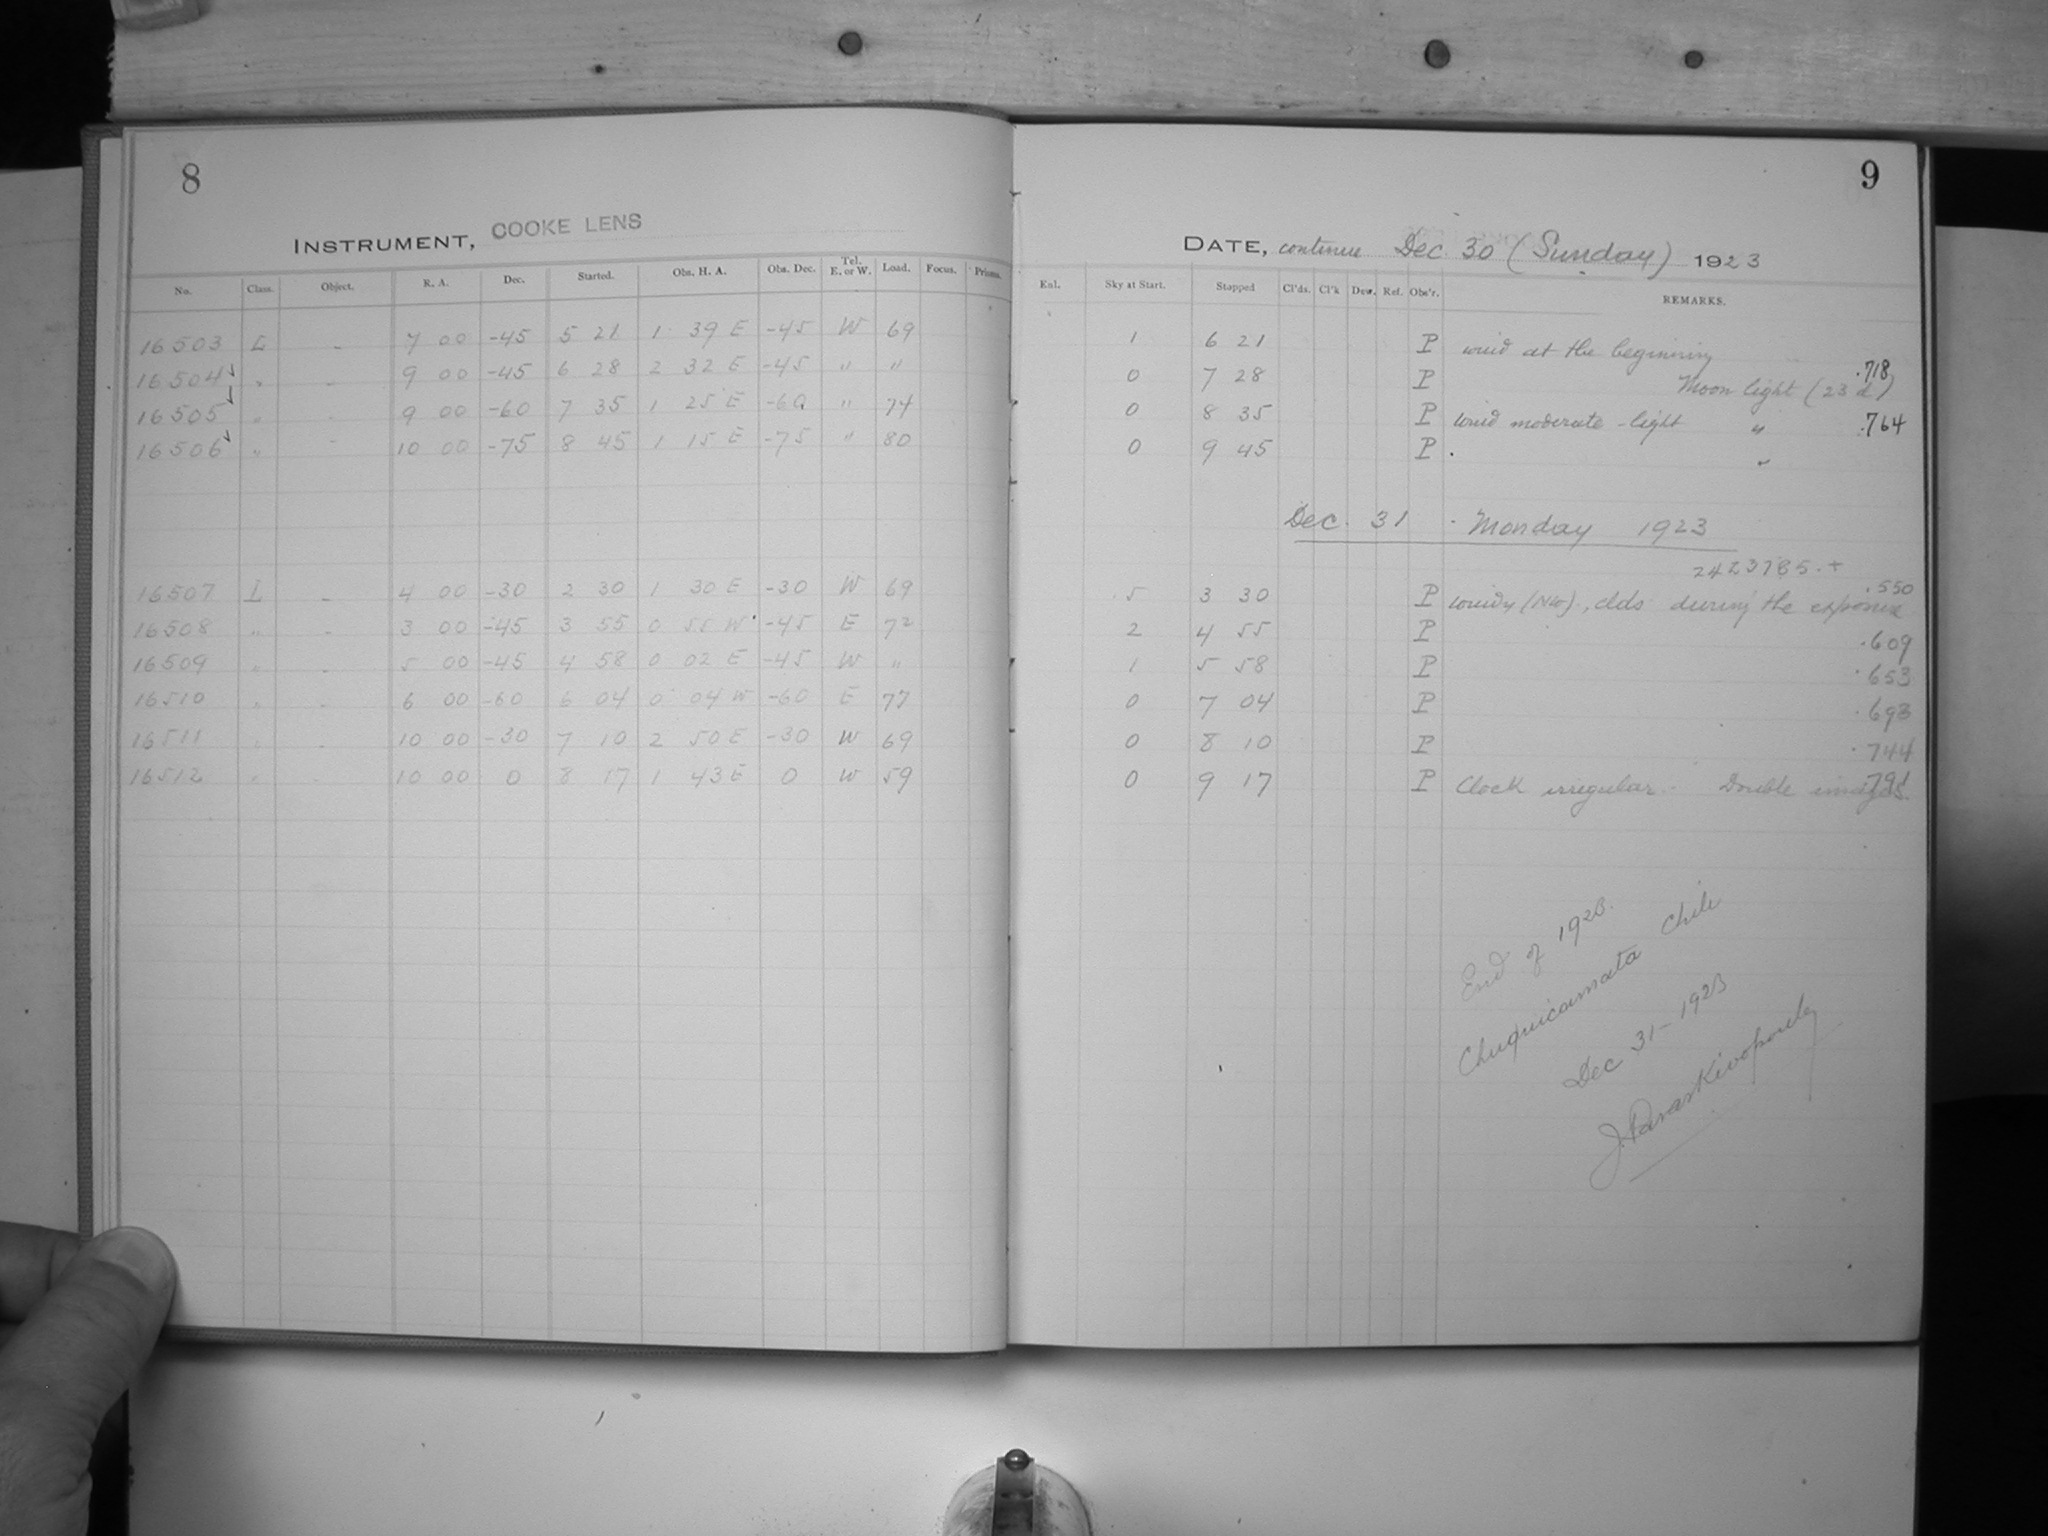 8
INSTRUMENT, COOKE LENS
No. Class. Object. R. A. Dec. Started. Obs. H. A. Obs. Dec. Tel. E. or W. Load. Focus. Prisms.
16503 L - 7 00 -45 5 21 1 39 E -45 W 69
16504 " - 9 00 -45 6 28 2 32 E -45 " "
16505 " - 9 00 -60 7 35 1 25 E -60 " 74
16506 " - 10 00 -75 8 45 1 15 E -75 " 80
16507 L - 4 00 -30 2 30 1 30 E -30 W 69
16508 " - 3 00 -45 3 55 0 55 W -45 E 72
16509 " - 5 00 -45 4 58 0 02 E -45 W "
16510 " - 6 00 -60 6 04 0 04 W -60 E 77
16511 " - 10 00 -30 7 10 2 50 E -30 W 69
16512 " - 10 00 0 8 17 1 43 E 0 W 59
9
DATE, continue Dec. 30 (Sunday) 1923
Enl. Sky at Start. Stopped Cl'ds. Cl'k Dew. Ref. Obs'r. REMARKS.
1 6 21 P wind at the beginning
0 7 28 P Moon light (23 d) .718
0 8 35 P wind moderate - light " .764
0 9 45 P "
Dec. 31 - Monday 1923
2423785.+
5 3 30 P windy (NW), clds during the exposure .550
2 4 55 P .609
1 5 58 P .653
0 7 04 P .693
0 8 10 P .744
0 9 17 P Clock irregular. Double images. .791
End of 1923.
Chuquicamata Chile
Dec 31 - 1923
J. Paraskevopoulos